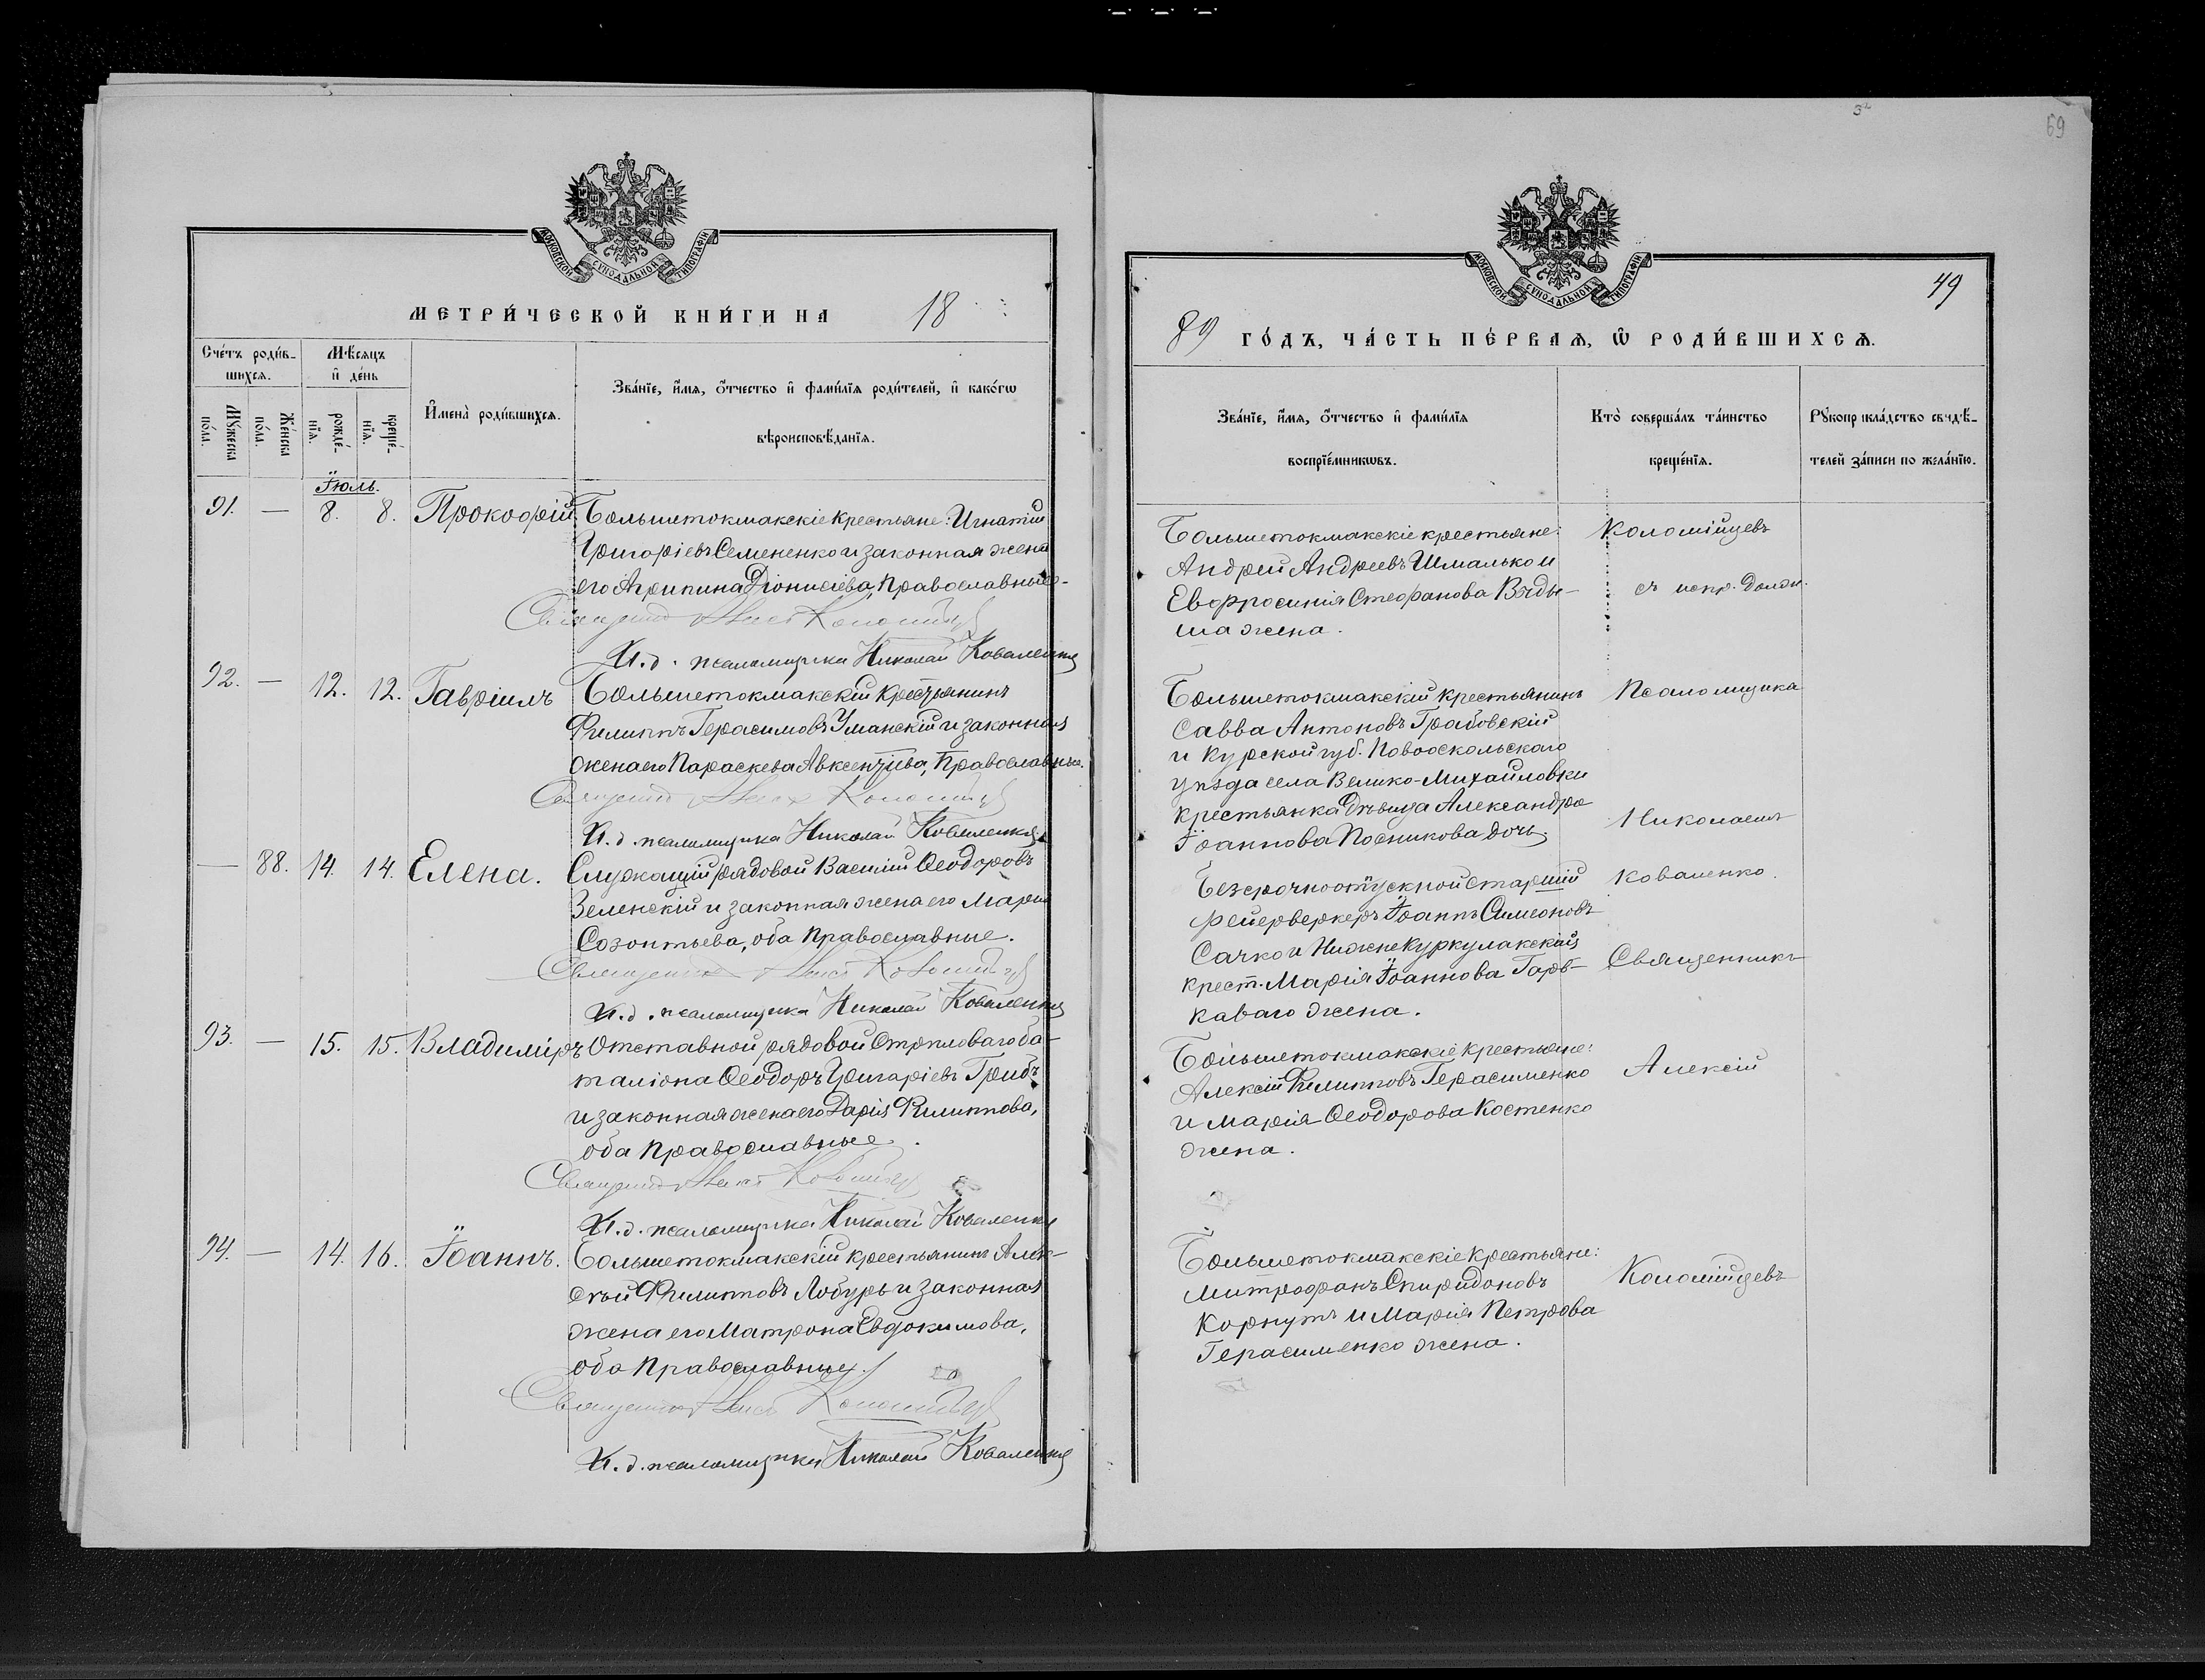 МОСКОВСКОЙ СѴНОДАЛЬНОЙ ТИПОГРАФІИ
МЕТРИ́ЧЕСКОЙ КНИ́ГИ НА 18
Сче́тъ роди́в-
шихсѧ.
Мѣсѧцъ
и҆ де́нь
Мꙋ́жеска
по́ла.
Же́нска
по́ла.
рожде́-
нїѧ.
креще́-
нїѧ.
И҆мена̀ роди́вшихсѧ.
Зва́нїе, и҆́мѧ, ѻ҆́тчество и҆ фами́лїѧ роди́телей, и҆ како́гѡ
вѣроисповѣ́данїѧ.
Іюль.
91. — 8. 8. Прокофій
Большетокмакскіе крестьяне: Игнатій
Григоріевъ Семененко и законная жена
его Агрипина Діонисіева, православные-
Священникъ Алекс Коломійцевъ
И. д. псаломщика Николай Коваленко
92. — 12. 12. Гавріилъ
Большетокмакскій крестьянинъ
Филиппъ Герасимовъ Уманскій и законная
жена его Параскева Авксентіева, Православные.
Священникъ Алекс Коломійцевъ
И. д. псаломщика Николай Коваленко
— 88. 14. 14. Елена.
Служащій рядовой Василій Ѳеодоровъ
Зеленскій и законная жена его Марія
Созонтьева, оба православные.
Священникъ Алекс Коломійцевъ
И. д. псаломщика Николай Коваленко
93. — 15. 15. Владиміръ
Отставной рядовой Стрѣловаго ба-
таліона Ѳеодоръ Григоріевъ Грибъ
и законная жена его Дарія Филиппова,
оба православные.
Священникъ Алекс Коломійцевъ
И. д. псаломщика Николай Коваленко
94. — 14. 16. Іоаннъ.
Большетокмакскій крестьянинъ Алек-
сѣй Филипповъ Лобурь и законная
жена его Матрона Евдокимова,
оба православные.
Священникъ Алекс Коломійцевъ
И. д. псаломщика Николай Коваленко
69
МОСКОВСКОЙ СѴНОДАЛЬНОЙ ТИПОГРАФІИ
49
89 ГО́ДЪ, ЧА́СТЬ ПЕ́РВАѦ, Ѡ҆ РОДИ́ВШИХСѦ.
Зва́нїе, и҆́мѧ, ѻ҆́тчество и҆ фами́лїѧ
воспрїе́мникѡвъ.
Кто̀ соверша́лъ та́инство
креще́нїѧ.
Рꙋкоприкла́дство свидѣ́-
телей за́писи по жела́нїю.
Большетокмакскіе крестьяне:
Андрей Андреевъ Шмалько и
Евфросинія Стефанова Вяды-
ша жена.
Коломійцевъ
съ испр. должн.
Большетокмакскій крестьянинъ
Савва Антоновъ Грабовскій
и Курской губ. Новооскольскаго
уѣзда села Велико-Михайловки
крестьянка дѣвица Александра
Іоаннова Посникова дочь.
Псаломщика
Николаемъ
Безсрочноотпускной старшій
фейерверкеръ Іоаннъ Симеоновъ
Сачко и Нижнекуркулакская
крест. Марія Іоаннова Гарб-
каваго жена.
Коваленко.
Священникъ
Большетокмакскіе крестьяне:
Алексій Филипповъ Герасименко
и Марія Ѳеодорова Костенко
жена.
Алексій
Большетокмакскіе крестьяне:
Митрофанъ Спиридоновъ
Корнутъ и Марія Петрова
Герасименко жена.
Коломійцевъ